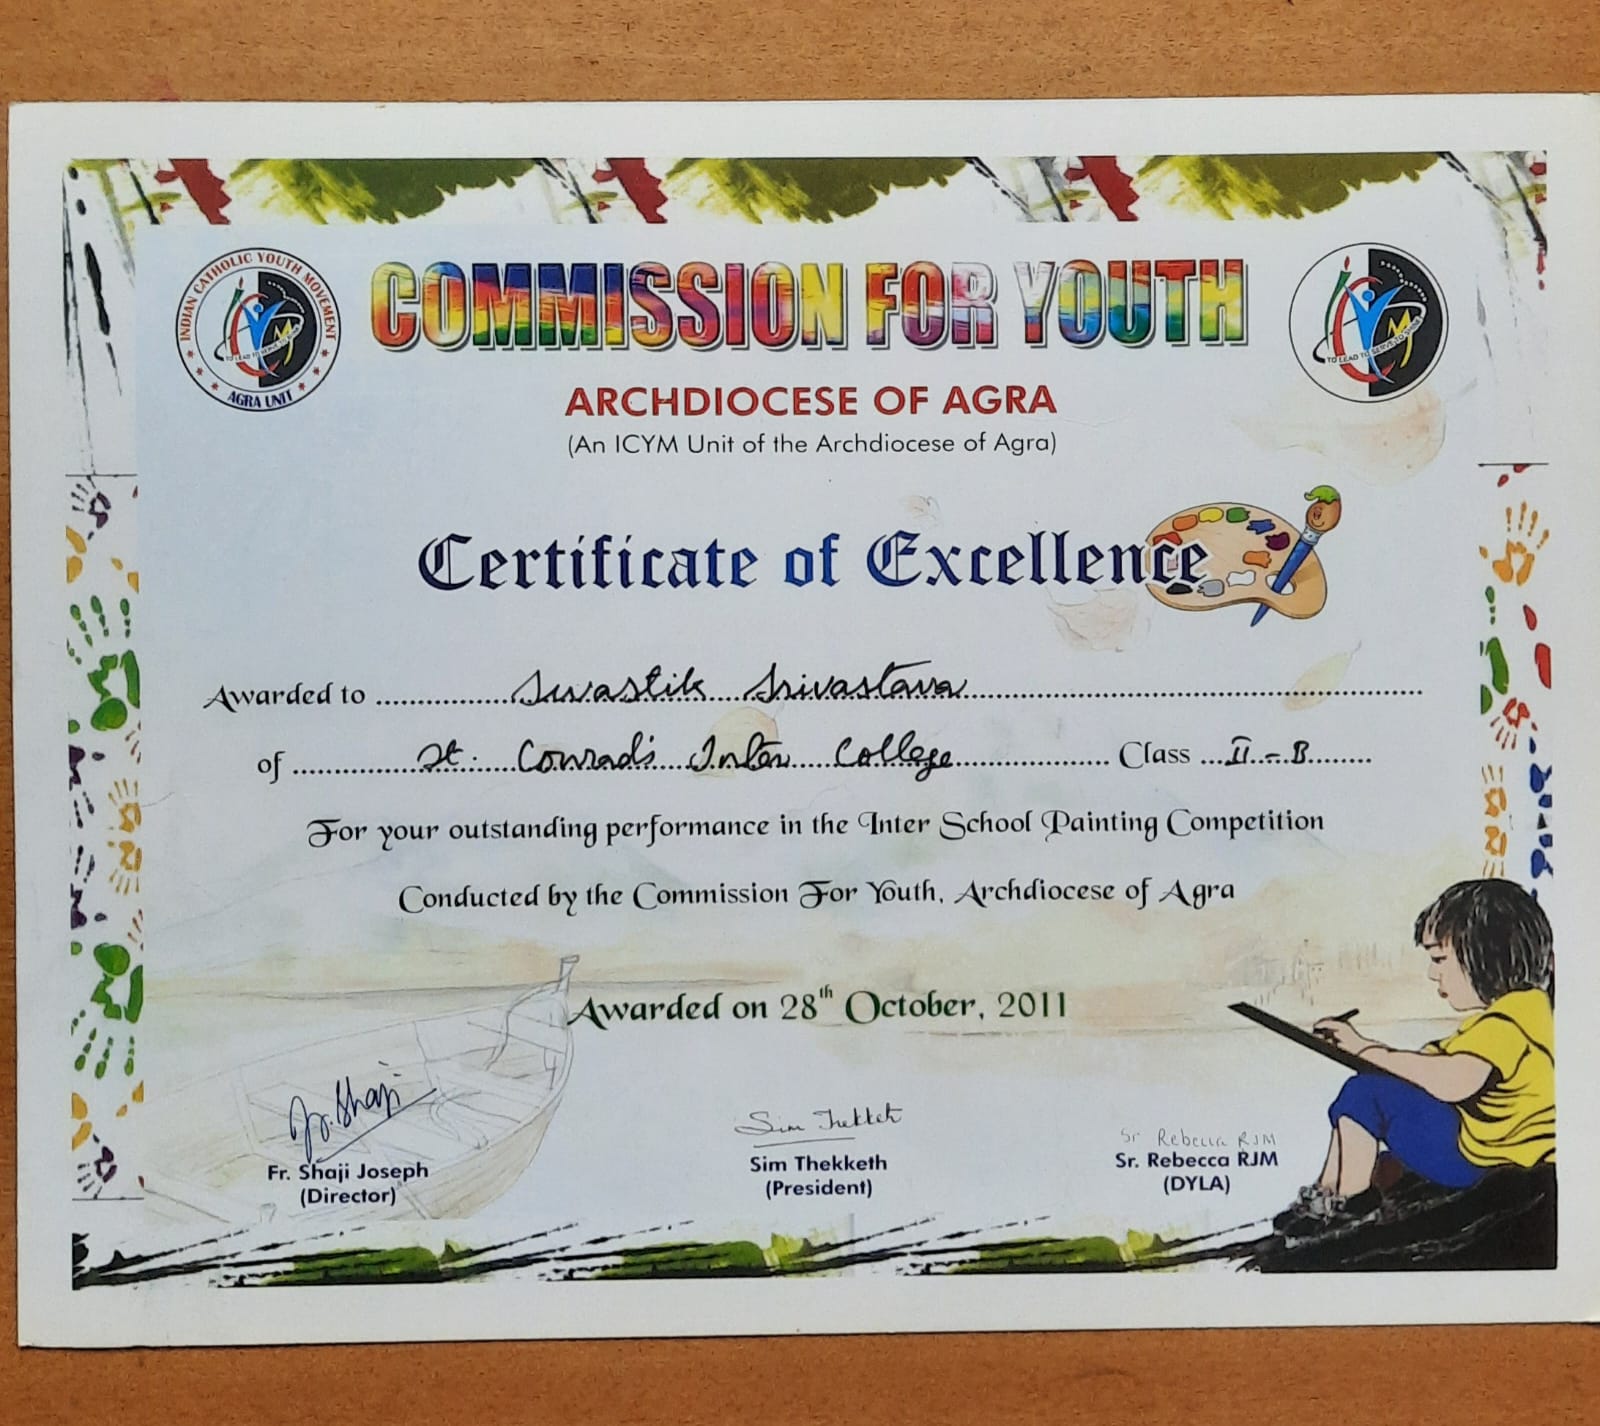 INDIAN CATHOLIC YOUTH MOVEMENT
TO LEAD TO SERVE TO
AGRA UNIT
COMMISSION FOR YOUTH
TO LEAD TO SERVE TO
ARCHDIOCESE OF AGRA
(An ICYM Unit of the Archdiocese of Agra)
Certificate of Excellence
Awarded to Swastik Srivastava
of St. Conrad's Inter College Class II-B
For your outstanding performance in the Inter School Painting Competition
Conducted by the Commission For Youth, Archdiocese of Agra
Awarded on 28th October, 2011
Fr. Shaji
Sim Thekketh
Sr Rebecca RJM
Fr. Shaji Joseph
(Director)
Sim Thekketh
(President)
Sr. Rebecca RJM
(DYLA)